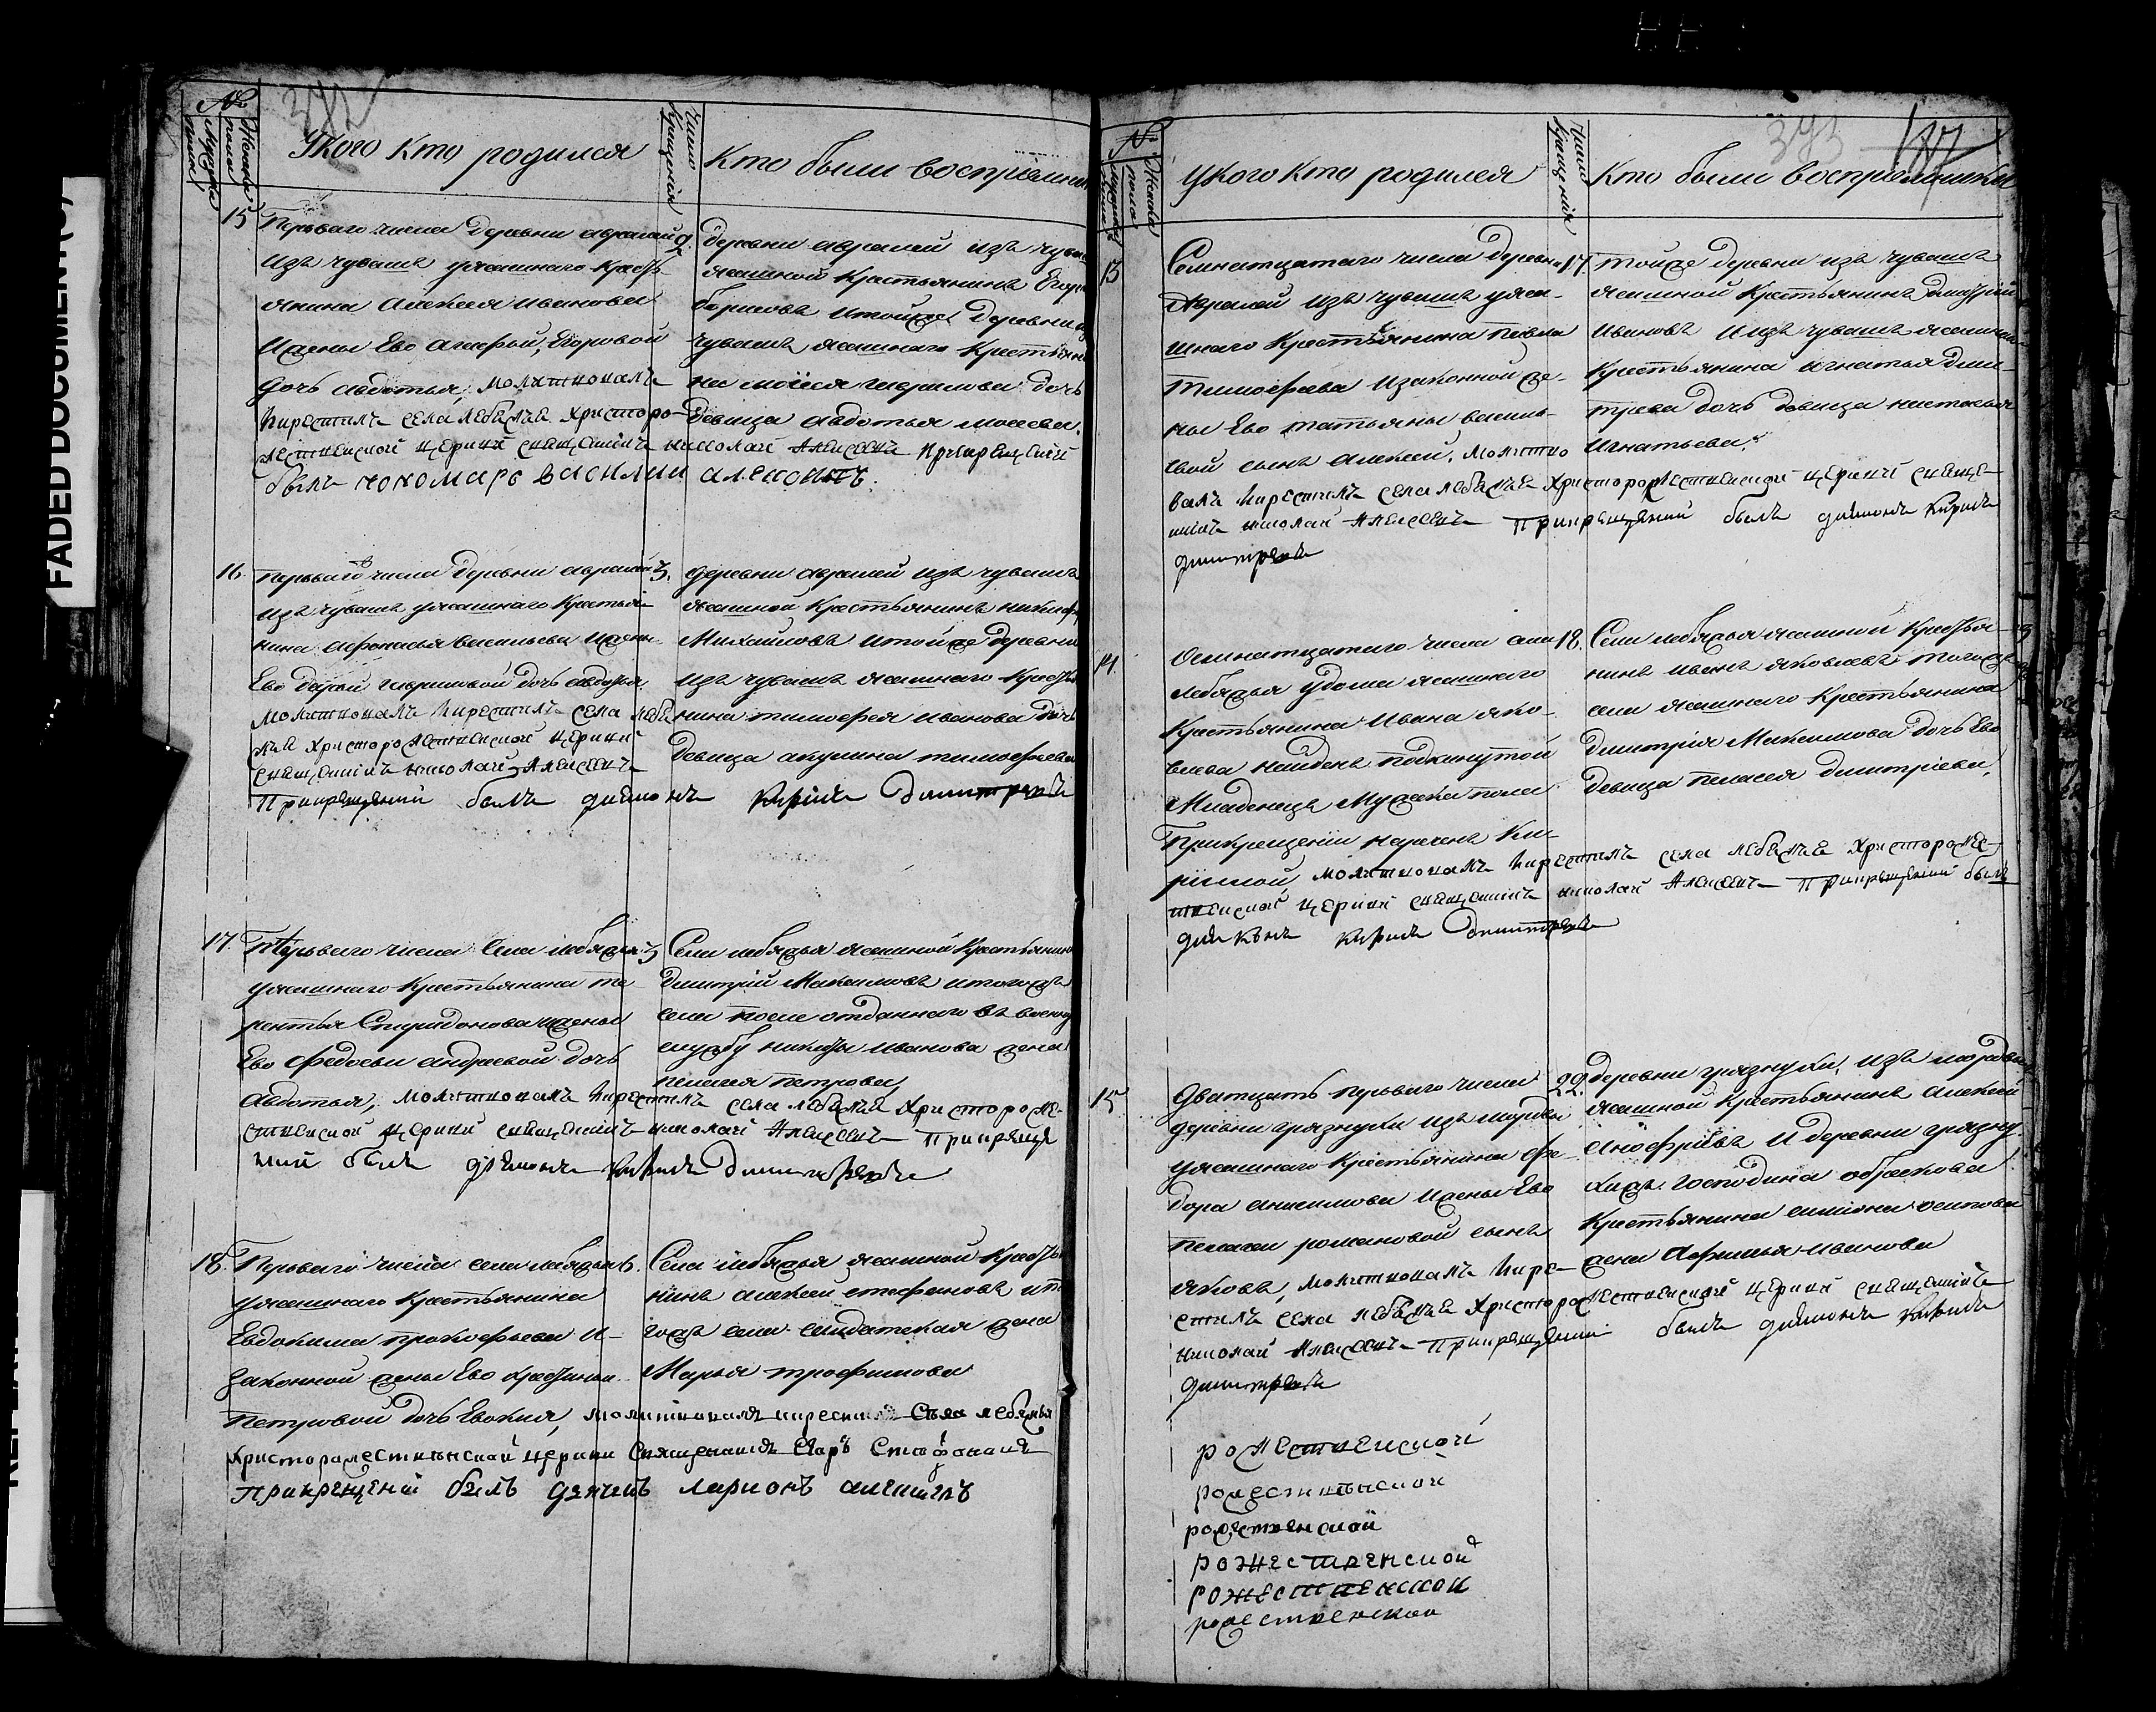 FADED DOCUMENT
382
№
Мужеска пола
Женска пола
Укого кто родился
Число крещения
Кто были восприемни
15
Перваго числа деревни авралей
изъ чувашъ уясашнаго кресть-
янина Алексея иванова
ижены Ево агафьи, Егоровой
дочь авдотья, молитвовалъ
икрестилъ села лебяжья христоро-
жественской церкви священникъ николай Алексеевъ прикрещении
былъ пономарь василии алексиевъ.
9.
деревни авралей изъ чуваш
ясашной крестьянинъ Егор
борисовъ итойже деревни из
чувашъ ясашнаго крестьяни
на моисея гаврилова дочь
девица авдотья моисева.
16.
перваго числа деревни авралей
изъ чувашъ уясашнаго крестья-
нина афонасья васильева ижены
Ево дарьи гавриловой дочь авдотья
молитвовалъ икрестилъ села лебя
жья христорожественской церкви
священникъ николай Алексеевъ
прикрещении былъ дияконъ кирилъ димитревъ
3.
деревни авралей изъ чувашъ
ясашной крестьянинъ никифор
Михайловъ итойже деревни
изъ чувашъ ясашнаго кресть
нина тимофея иванова дочь
девица акулина тимофеева
17.
Перваго числа села лебяжья
уясашнаго крестьянина те
рентья Спиридонова ижены
Ево федосьи андреевой дочь
авдотья, молитвовалъ икрестилъ села лебяжья христороже-
ственской церкви священникъ николай Алексеевъ прикреще
нии былъ дияконъ кирилъ димитревъ
3
Села лебяжья ясашной крестьянинъ
димитрий Максимовъ итогожъ
села после отданнаго въ военну
службу никиты иванова жена
пелагея петрова,
18.
Перваго числа села лебяжья
уясашнаго крестьянина
Евдокима прокофьева и
законной жены Ево
петровой дочь Евокия, молитвовалъ икрестилъ села лебяжья
христорожественской церкви священникъ Егоръ Стефановъ
прикрещении былъ дячокъ ларионъ алексиевъ
6.
Села лебяжья ясашной кресть
нинъ алексей стефановъ ито
гожъ села салдатская жена
Марья трофимова
383
№
Мужеска пола
Женска пола
Укого кто родился
Число крещения
Кто были восприемники
13
Семнатцатаго числа деревни
Авралей изъ чувашъ уяса-
шнаго крестьянина павла
тимофеева изаконной же-
ны Ево татьяны василь-
евой сынъ алексей, молитво
валъ икрестилъ села лебяжья христорожественской церкви священ-
никъ николай Алексеевъ прикрещении былъ дияконъ кирилъ
димитревъ
17.
тойже деревни изъ чувашъ
ясашной крестьянинъ дмитрий
ивановъ и изъ чувашъ ясашнаго
крестьянина игнатья дми-
трева дочь девица настасья
игнатьева.
14.
Осмнатцатаго числа села
лебяжья удома ясашнаго
крестьянина ивана яко-
влева найденъ подкинутой
Младенецъ Мужска пола
Прикрещении нареченъ Ки-
рилой, молитвовалъ икрестилъ села лебяжья христороже-
ственской церкви священникъ николай Алексеевъ прикрещении былъ
дияконъ кирилъ димитревъ
18.
Села лебяжья ясашной крестья-
нинъ иванъ яковлевъ тогожъ
села ясашнаго крестьянина
димитрия Максимова дочь Ево
девица пелагея димитриева,
15
дватцать перваго числа
деревни грязнухи изъ мордвы
уясашнаго крестьянина фе-
дора анисимова ижены Ево
пелагеи романовой сынъ
яковъ, молитвовалъ икре-
стилъ села лебяжья христорожественской церкви священникъ
николай Алексеевъ прикрещении былъ дияконъ кирилъ
димитревъ
22.
деревни грязнухи, изъ мордвы
ясашной крестьянинъ алексей
анофриевъ и деревни грязну
хижъ господина обрескова
крестьянина симиона осипова
жена Афимья иванова
рожественской
рожественской
рожественской
рожественской
рожественской
рожественской